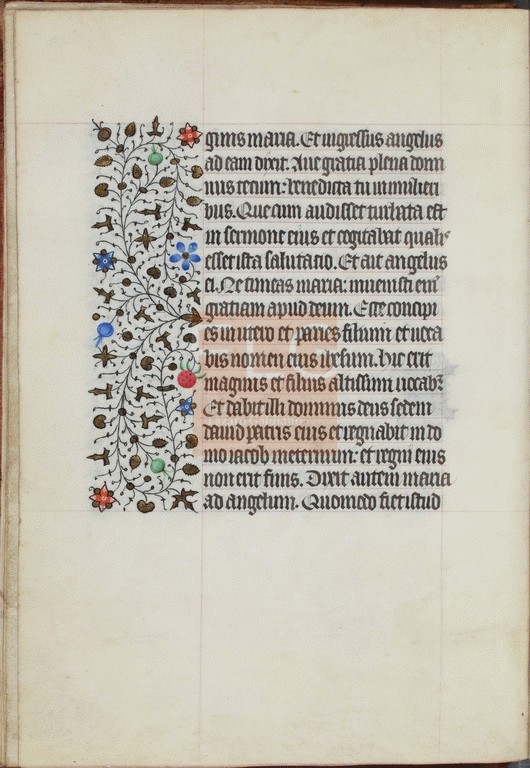 ginis maria. Et ingressus angelus
ad eam dixit. Aue gratia plena domi
nus tecum: benedicta tu in mulieri
bus. Que cum audisset turbata est
in sermone eius et cogitabat qualis
esset ista salutatio. Et ait angelus
ei. Ne timeas maria: inuenisti eni͂
gratiam apud deum. Ecce concipi
es in utero et paries filium et uoca
bis nomen eius ihesum. hic erit
magnus et filius altissimi uocabꝛ
Et dabit illi dominus deus sedem
dauid patris eius et regnabit in do
mo iacob ineternum: et regni eius
non erit finis. Dixit autem maria
ad angelum. Quomodo fiet istud